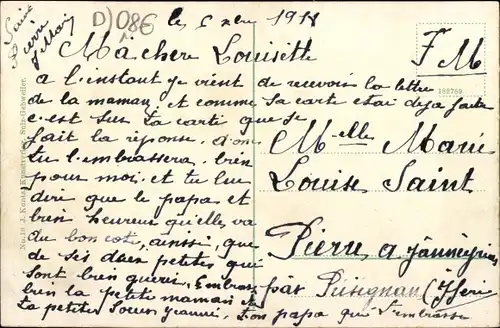 Saint Pierre
D) 086
les 6 1918
Ma chere Louisette
a l'instant je vient de recevoir la lettre
de la maman, et comme sa carte etai deja faite
c'est sur ta carte que je
fait la réponse. donc
tu l'embrassera, bien
pour moi, et tu lui
diré que le papa et
bien heureur qu'elle va
du bon coté, ainssi, que
de ses deux petites qui
sont bien gueri, Embrasse
bien la petite maman et
ta petites Soeur yeanne, ton papa qui t'embrasse
F M
182789
Melle Marie
Louise Saint
Pierre a Janneyrias
par Pusignan (Isere
No. 18 J. Kuntz, Kunstverlag, Sulz-Gebweiler.